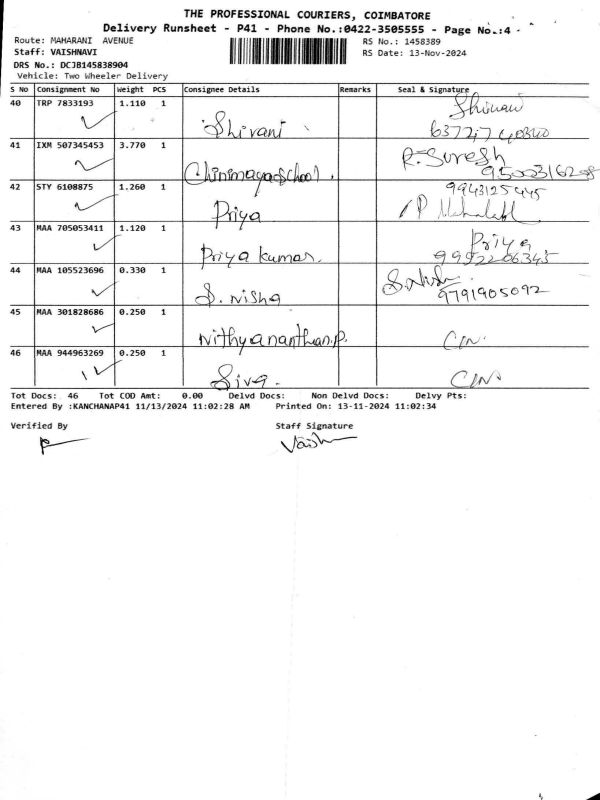 THE PROFESSIONAL COURIERS, COIMBATORE
Delivery Runsheet - P41 - Phone No.:0422-3505555 - Page No.:4
Route: MAHARANI AVENUE
RS No.: 1458389
Staff: VAISHNAVI
RS Date: 13-Nov-2024
DRS No.: DCJB145838904
Vehicle: Two Wheeler Delivery
S No Consignment No Weight PCS Consignee Details Remarks Seal & Signature
40 TRP 7833193 1.110 1 Shivani
41 IXM 507345453 3.770 1 Chinmaya School. R. Suresh
42 STY 6108875 1.260 1 Priya 9943125445
43 MAA 705053411 1.120 1 Priya kumar. Priya
9952206345
44 MAA 105523696 0.330 1 S. Nisha S. Nisha
9791905092
45 MAA 301828686 0.250 1 Nithyananthan.P.
46 MAA 944963269 0.250 1 Siva.
Tot Docs: 46 Tot COD Amt: 0.00 Delvd Docs: Non Delvd Docs: Delvy Pts:
Entered By :KANCHANAP41 11/13/2024 11:02:28 AM Printed On: 13-11-2024 11:02:34
Verified By Staff Signature
Vaish